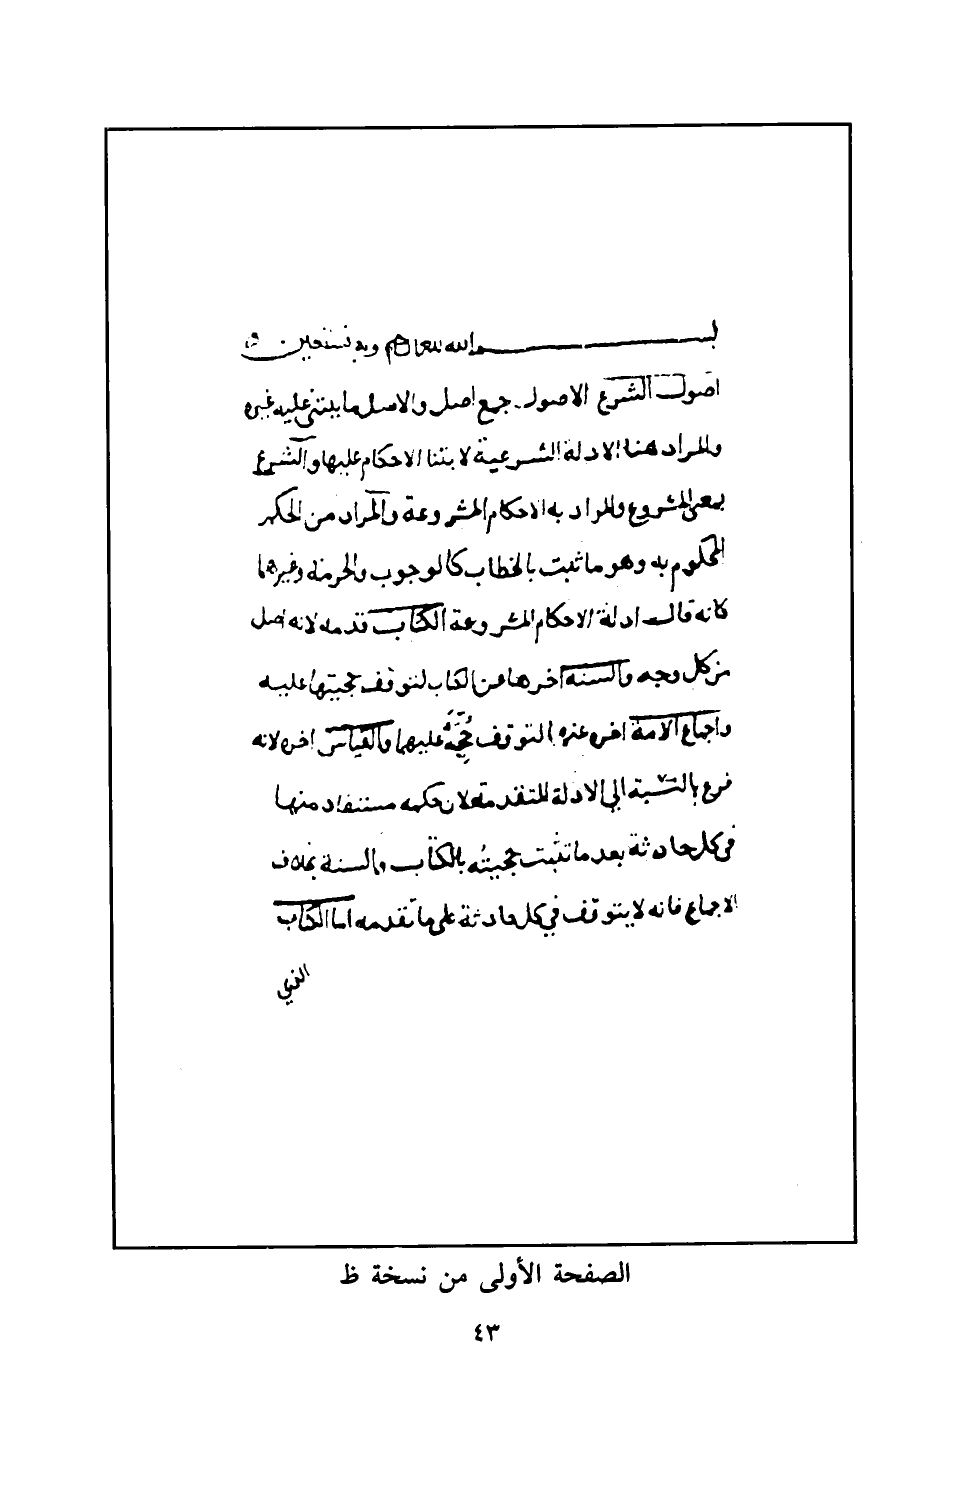 بسم الله الرحمن الرحيم وبه نستعين
اصول الشرع الاصول جمع اصل والاصل ما يبتنى عليه غيره
والمراد هنا الادلة الشرعية لابتنا الاحكام عليها والشرع
بمعنى المشروع والمراد به الاحكام المشروعة والمراد من الحكم
المحكوم به وهو ما ثبت بالخطاب كالوجوب والحرمة وغيرهما
كانه قال ادلة الاحكام المشروعة الكتاب قدمه لانه اصل
من كل وجه والسنة اخرها عن الكتاب لتوقف حجيتها عليه
واجماع الامة اخره عنهما لتوقف حجيته عليهما والقياس اخره لانه
فرع بالنسبة الى الادلة المتقدمة لان حكمه مستفاد منها
في كل حادثة بعد ما تثبت حجيته بالكتاب والسنة بخلاف
الاجماع فانه لا يتوقف في كل حادثة على ما تقدمه اما الكتاب
الصفحة الأولى من نسخة ظ
٤٣